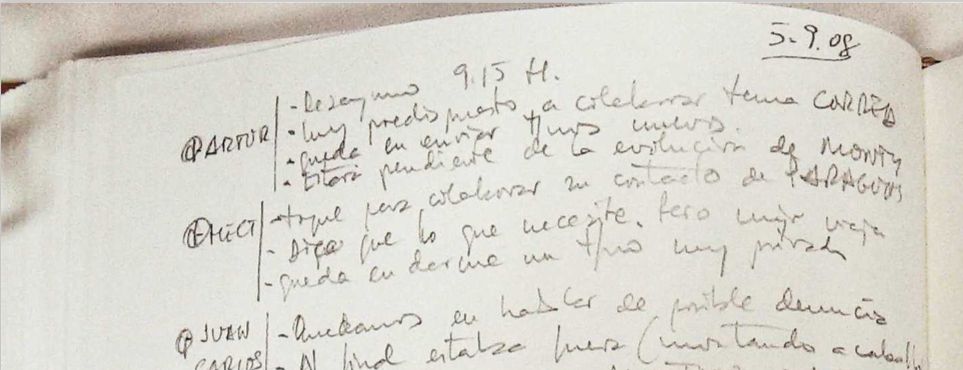 5-9.08
9.15 H.
ARTUR - Desayuno
- Muy predispuesto a colaborar tema CORREA
- queda en enviar tfnos nuevos.
- Estará pendiente de la evolución de MONTY
- toque para colaborar su contacto de PARAGUAS
- Diga que lo que necesite. Pero mujer vieja
- queda en darme un tfno muy privado
JUAN CARLOS - Quedamos en hablar de posible denuncia
- Al final estaba fuera (montando a caballo